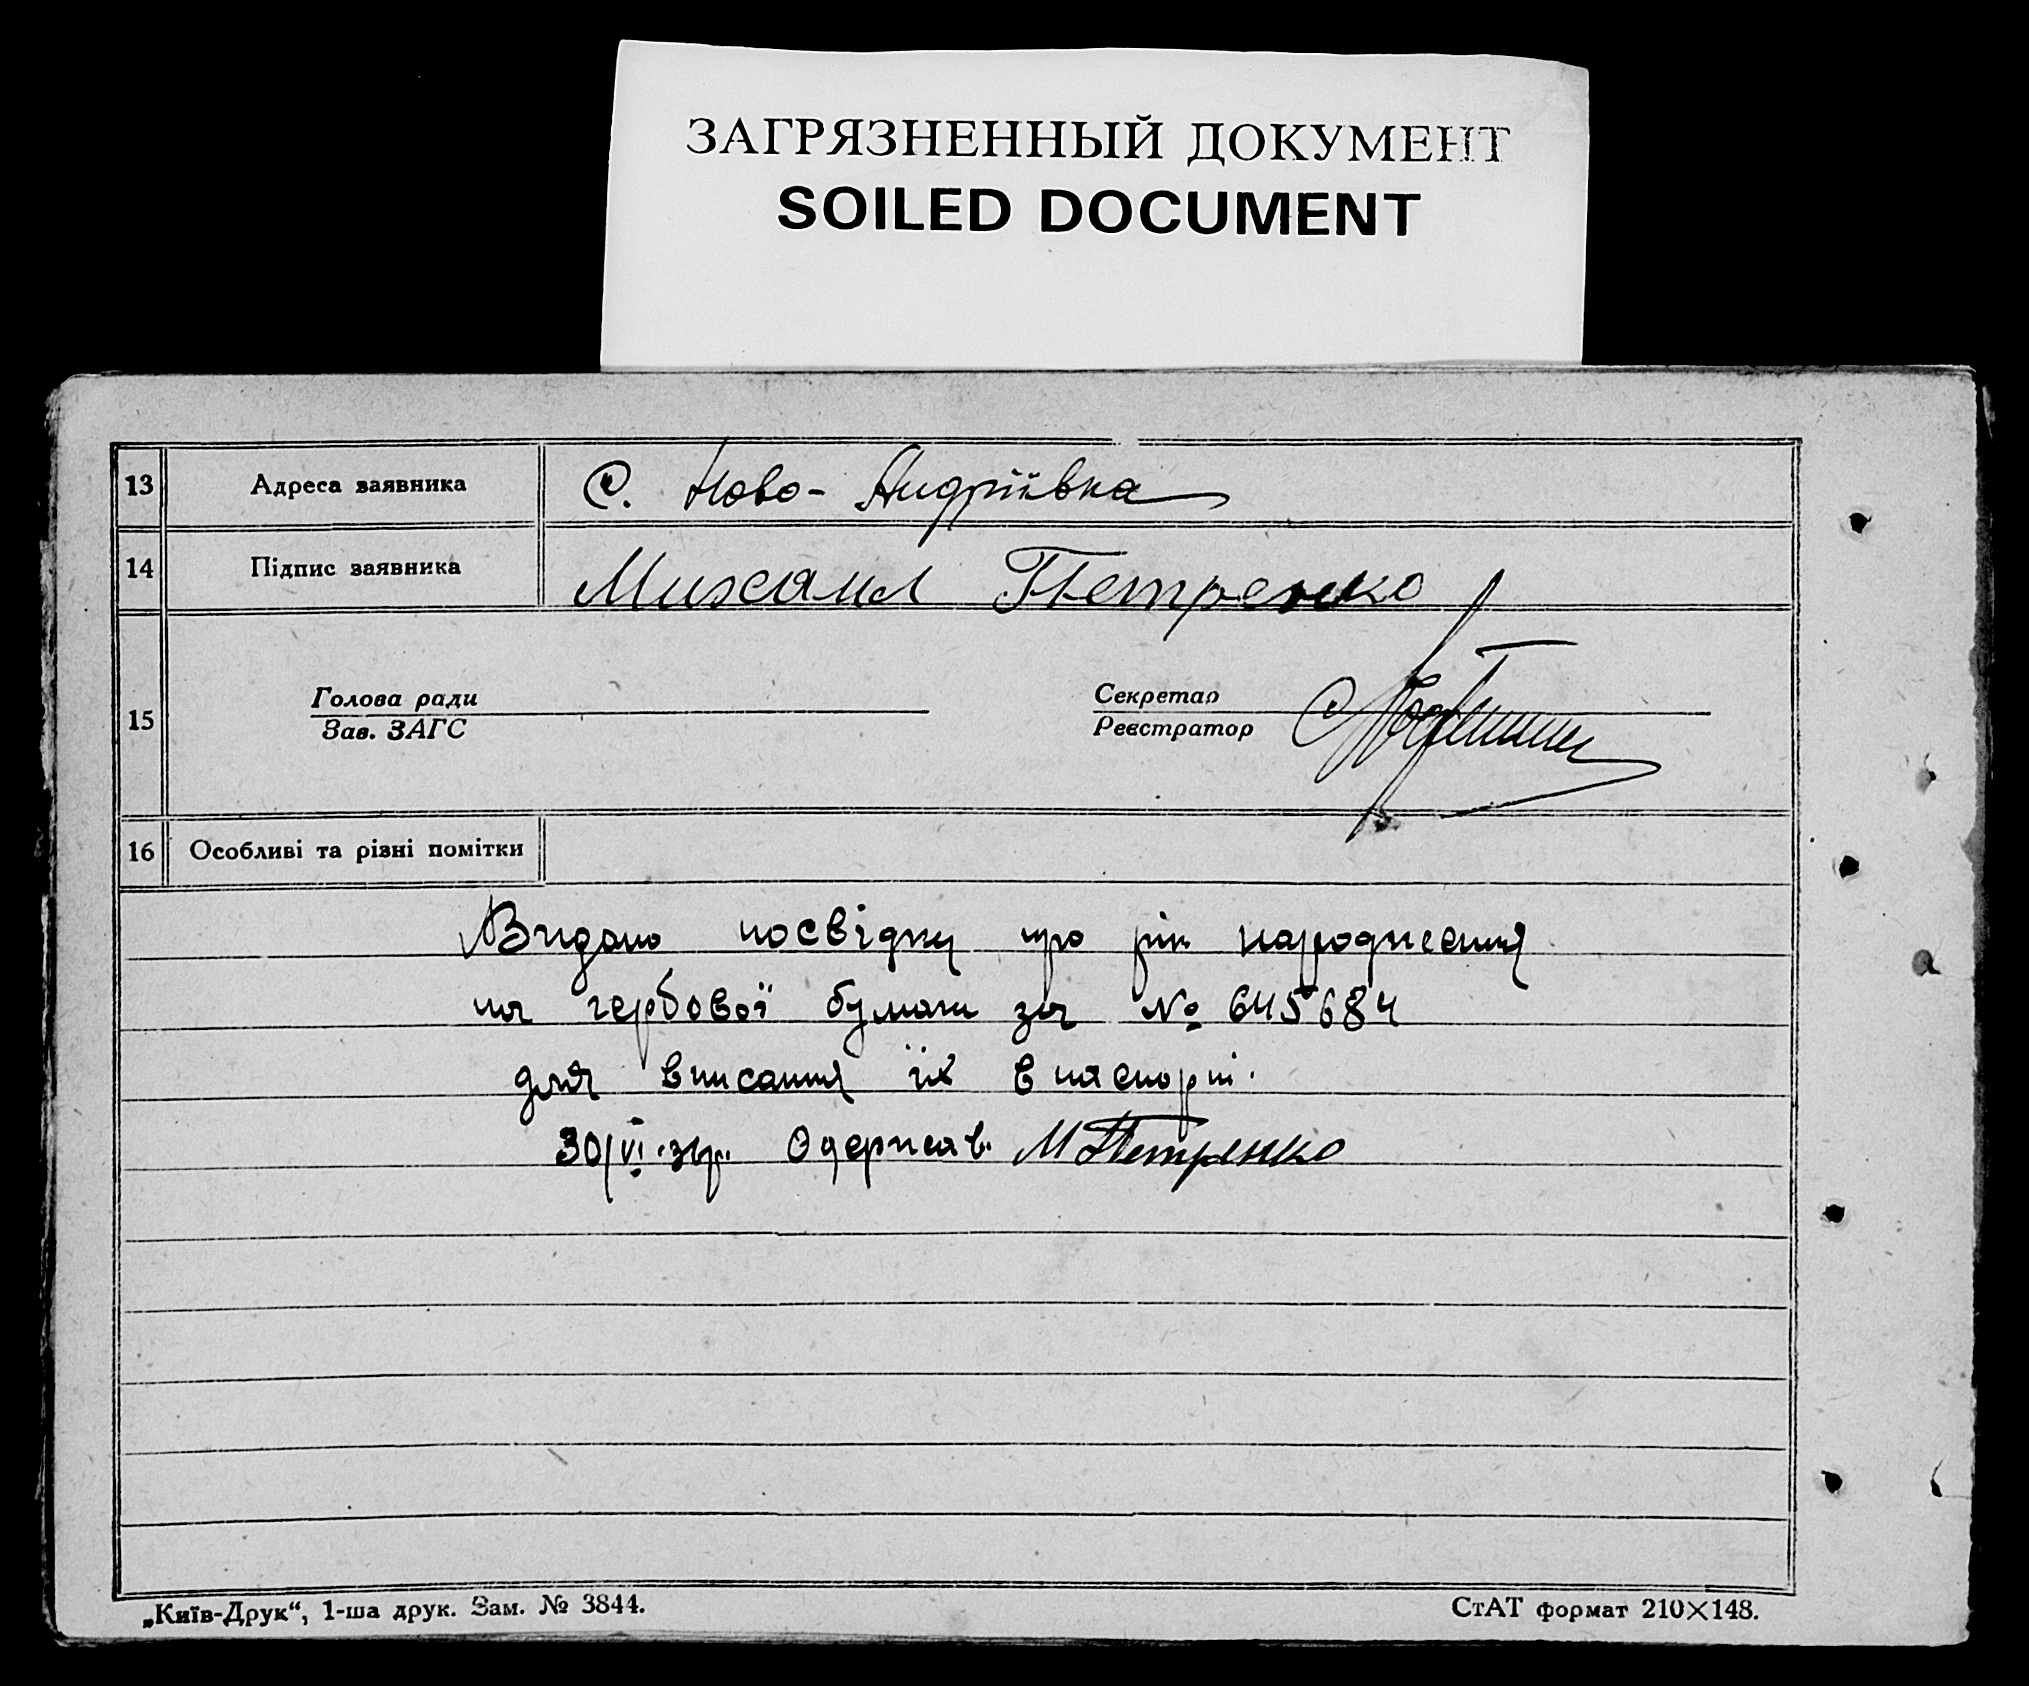 ЗАГРЯЗНЕННЫЙ ДОКУМЕНТ
SOILED DOCUMENT
13 Адреса заявника С. Ново-Андріївка
14 Підпис заявника Михаил Петренко
15 Голова ради Секретар
Зав. ЗАГС Реєстратор
16 Особливі та різні помітки
Видано посвідку про рік народження
на гербової бумаги за № 645684
для вписання їх в паспорт.
30/VI Одержав. М Петренко
„Київ-Друк“, 1-ша друк. Зам. № 3844. СтАТ формат 210×148.